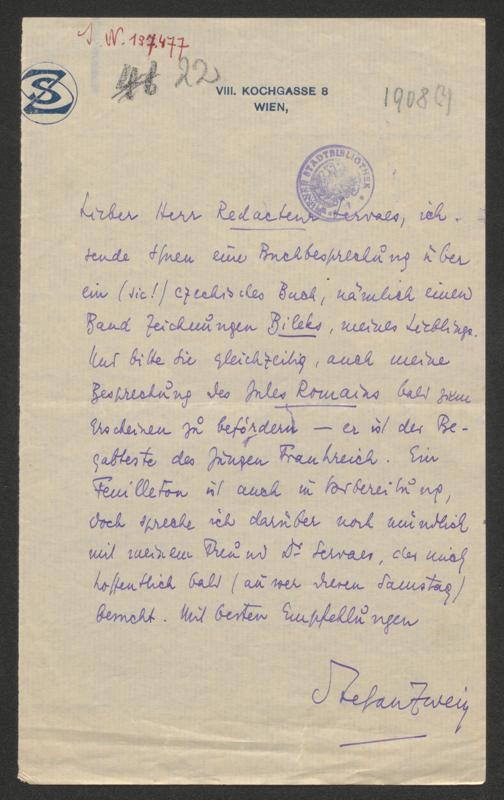 J. N. 137.477
22
SZ
VIII. KOCHGASSE 8
WIEN,
1908 (?)
WIENER STADTBIBLIOTHEK
Lieber Herr Redacteur Servaes, ich
sende Ihnen eine Buchbesprechung über
ein (sic!) czechisches Buch, nämlich einen
Band Zeichnungen Bileks, meines Lieblings.
Und bitte Sie gleichzeitig, auch meine
Besprechung des Jules Romains bald zum
Erscheinen zu befördern — er ist der Be-
gabteste des jungen Frankreich. Ein
Feuilleton ist auch in Vorbereitung,
doch spreche ich darüber noch mündlich
mit meinem Freund Dr Servaes, der mich
hoffentlich bald (ausser diesen Samstag)
besucht. Mit besten Empfehlungen
Stefan Zweig